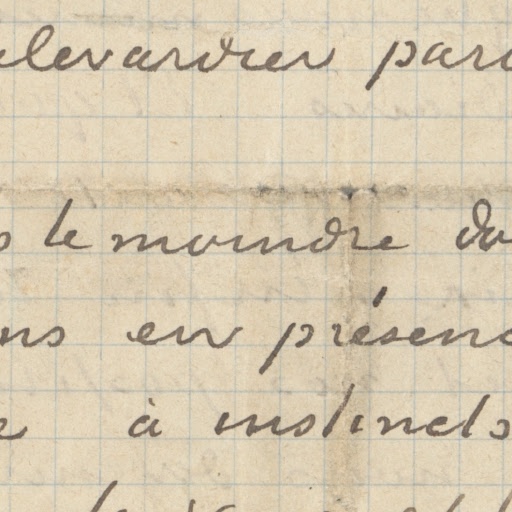 ulevardier par
le moindre do
ns en présenc
à instincts